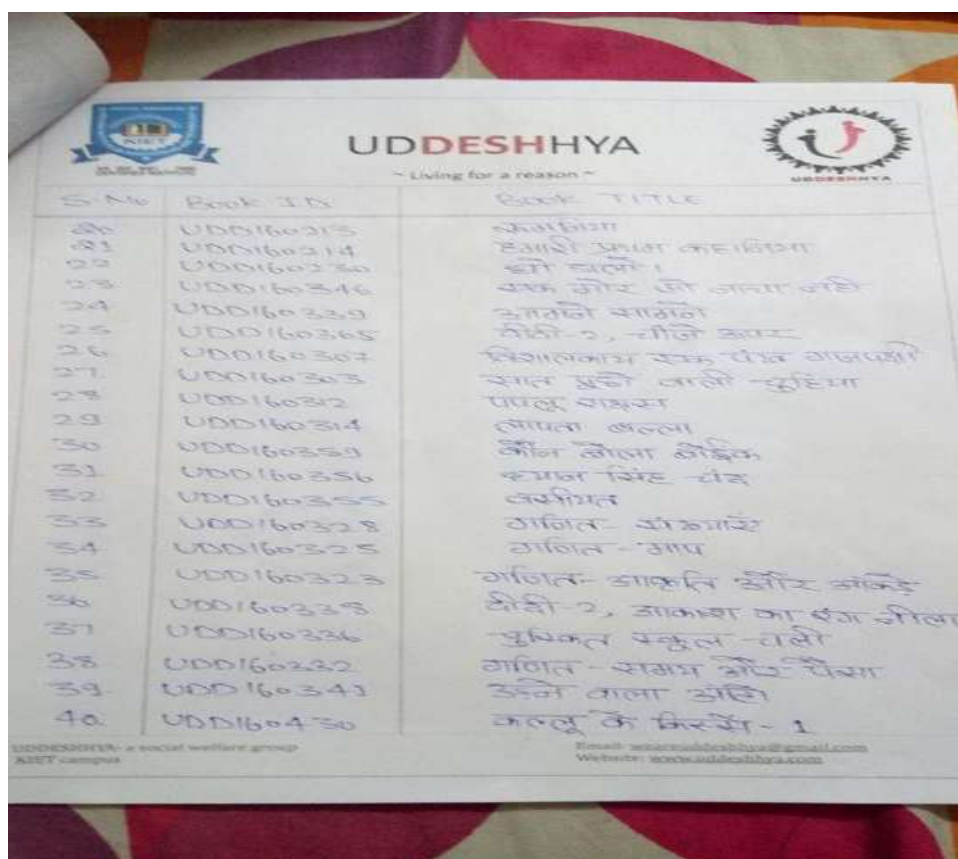 KIET
UDDESHHYA
~ Living for a reason ~
UDDESHHYA
S.No Book ID Book TITLE
20 UDD160213
21 UDD160214 हमारी प्रथम कहानिया
22 UDD160230
23 UDD160346 एक और
24 UDD160339 आमने सामने
25 UDD160365 दीदी-2, चीजे ऊपर
26 UDD160307 विशालकाय एक
27 UDD160303 सात पूछो वाली चुहिया
28 UDD160312 पपलू राक्षस
29 UDD160314 लापता बल्ला
30 UDD160359 कौन बोला
31 UDD160356 सिंह
32 UDD160355 वसीयत
33 UDD160328 गणित- संख्याएँ
34 UDD160325 गणित - माप
35 UDD160323 गणित- आकृति और आकडे
36 UDD160338 दीदी-2, आकाश का रंग नीला
37 UDD160336 स्कूल चली
38 UDD160332 गणित - समय और पैसा
39 UDD160341 उडने वाला
40 UDD160430 कल्लू के किस्से - 1
UDDESHHYA- a social welfare group Email- weareuddeshhya@gmail.com
KIET campus Website: www.uddeshhya.com